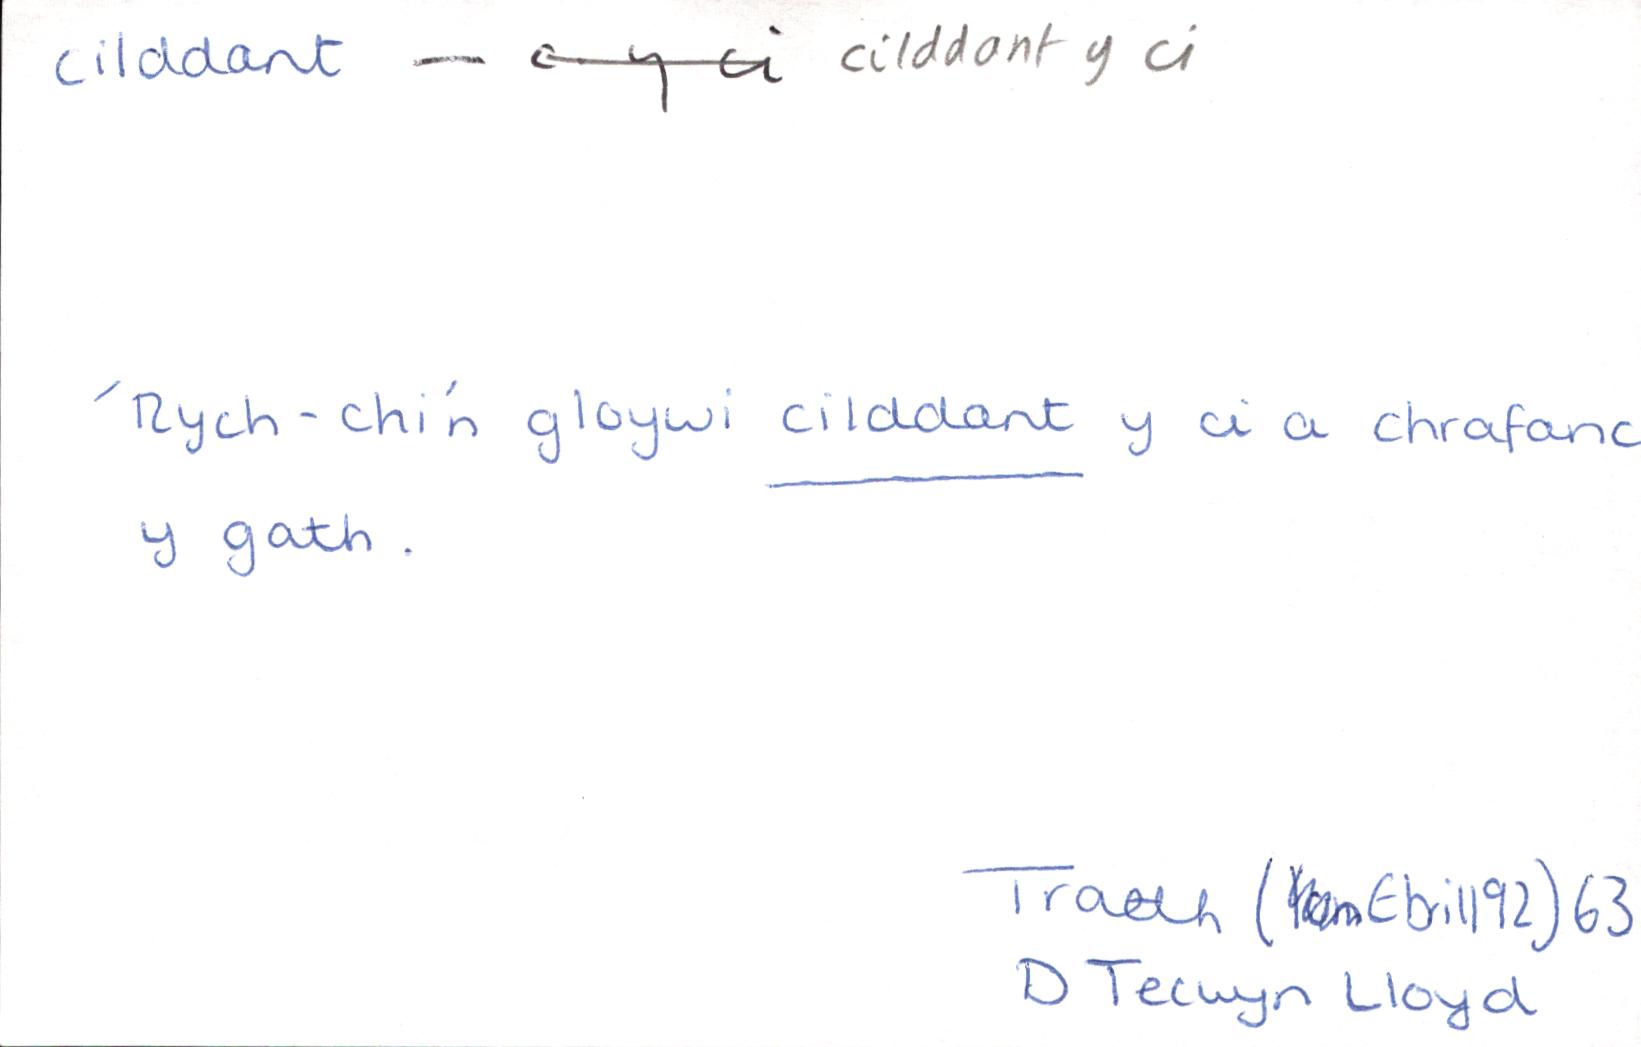 cilddant — c y ci cilddant y ci
'Rych-chi'n gloywi cilddant y ci a chrafanc
y gath.
Traeth (Ebrill92) 63
D Tecwyn Lloyd